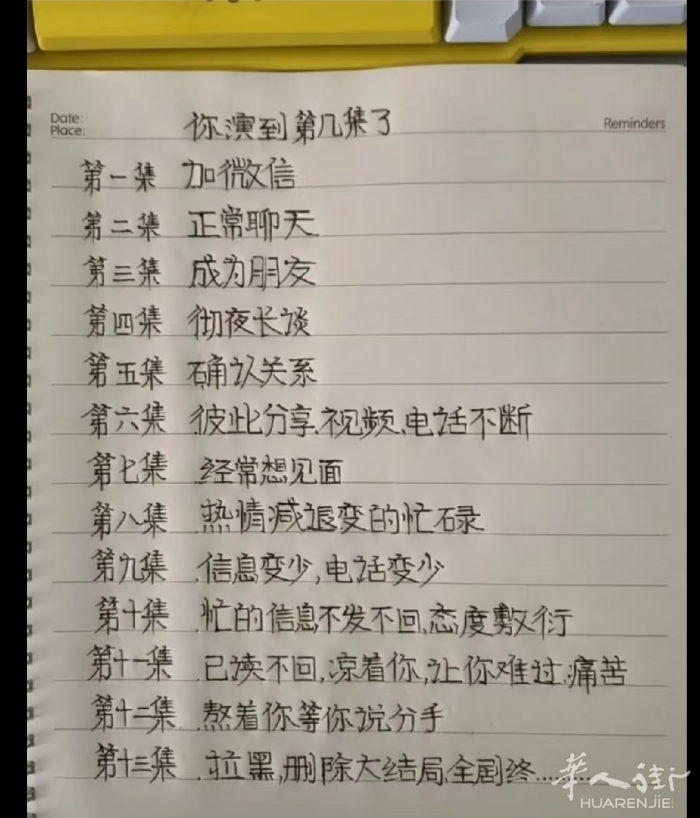 Date:
Place:
你演到第几集了
Reminders
第一集 加微信
第二集 正常聊天
第三集 成为朋友
第四集 彻夜长谈
第五集 确认关系
第六集 彼此分享、视频、电话不断
第七集 经常想见面
第八集 热情减退变的忙碌
第九集 信息变少,电话变少
第十集 忙的信息不发不回,态度敷衍
第十一集 已读不回,凉着你,让你难过.痛苦
第十二集 熬着你.等你说分手
第十三集 拉黑,删除大结局,全剧终………
华人街
HUARENJIE